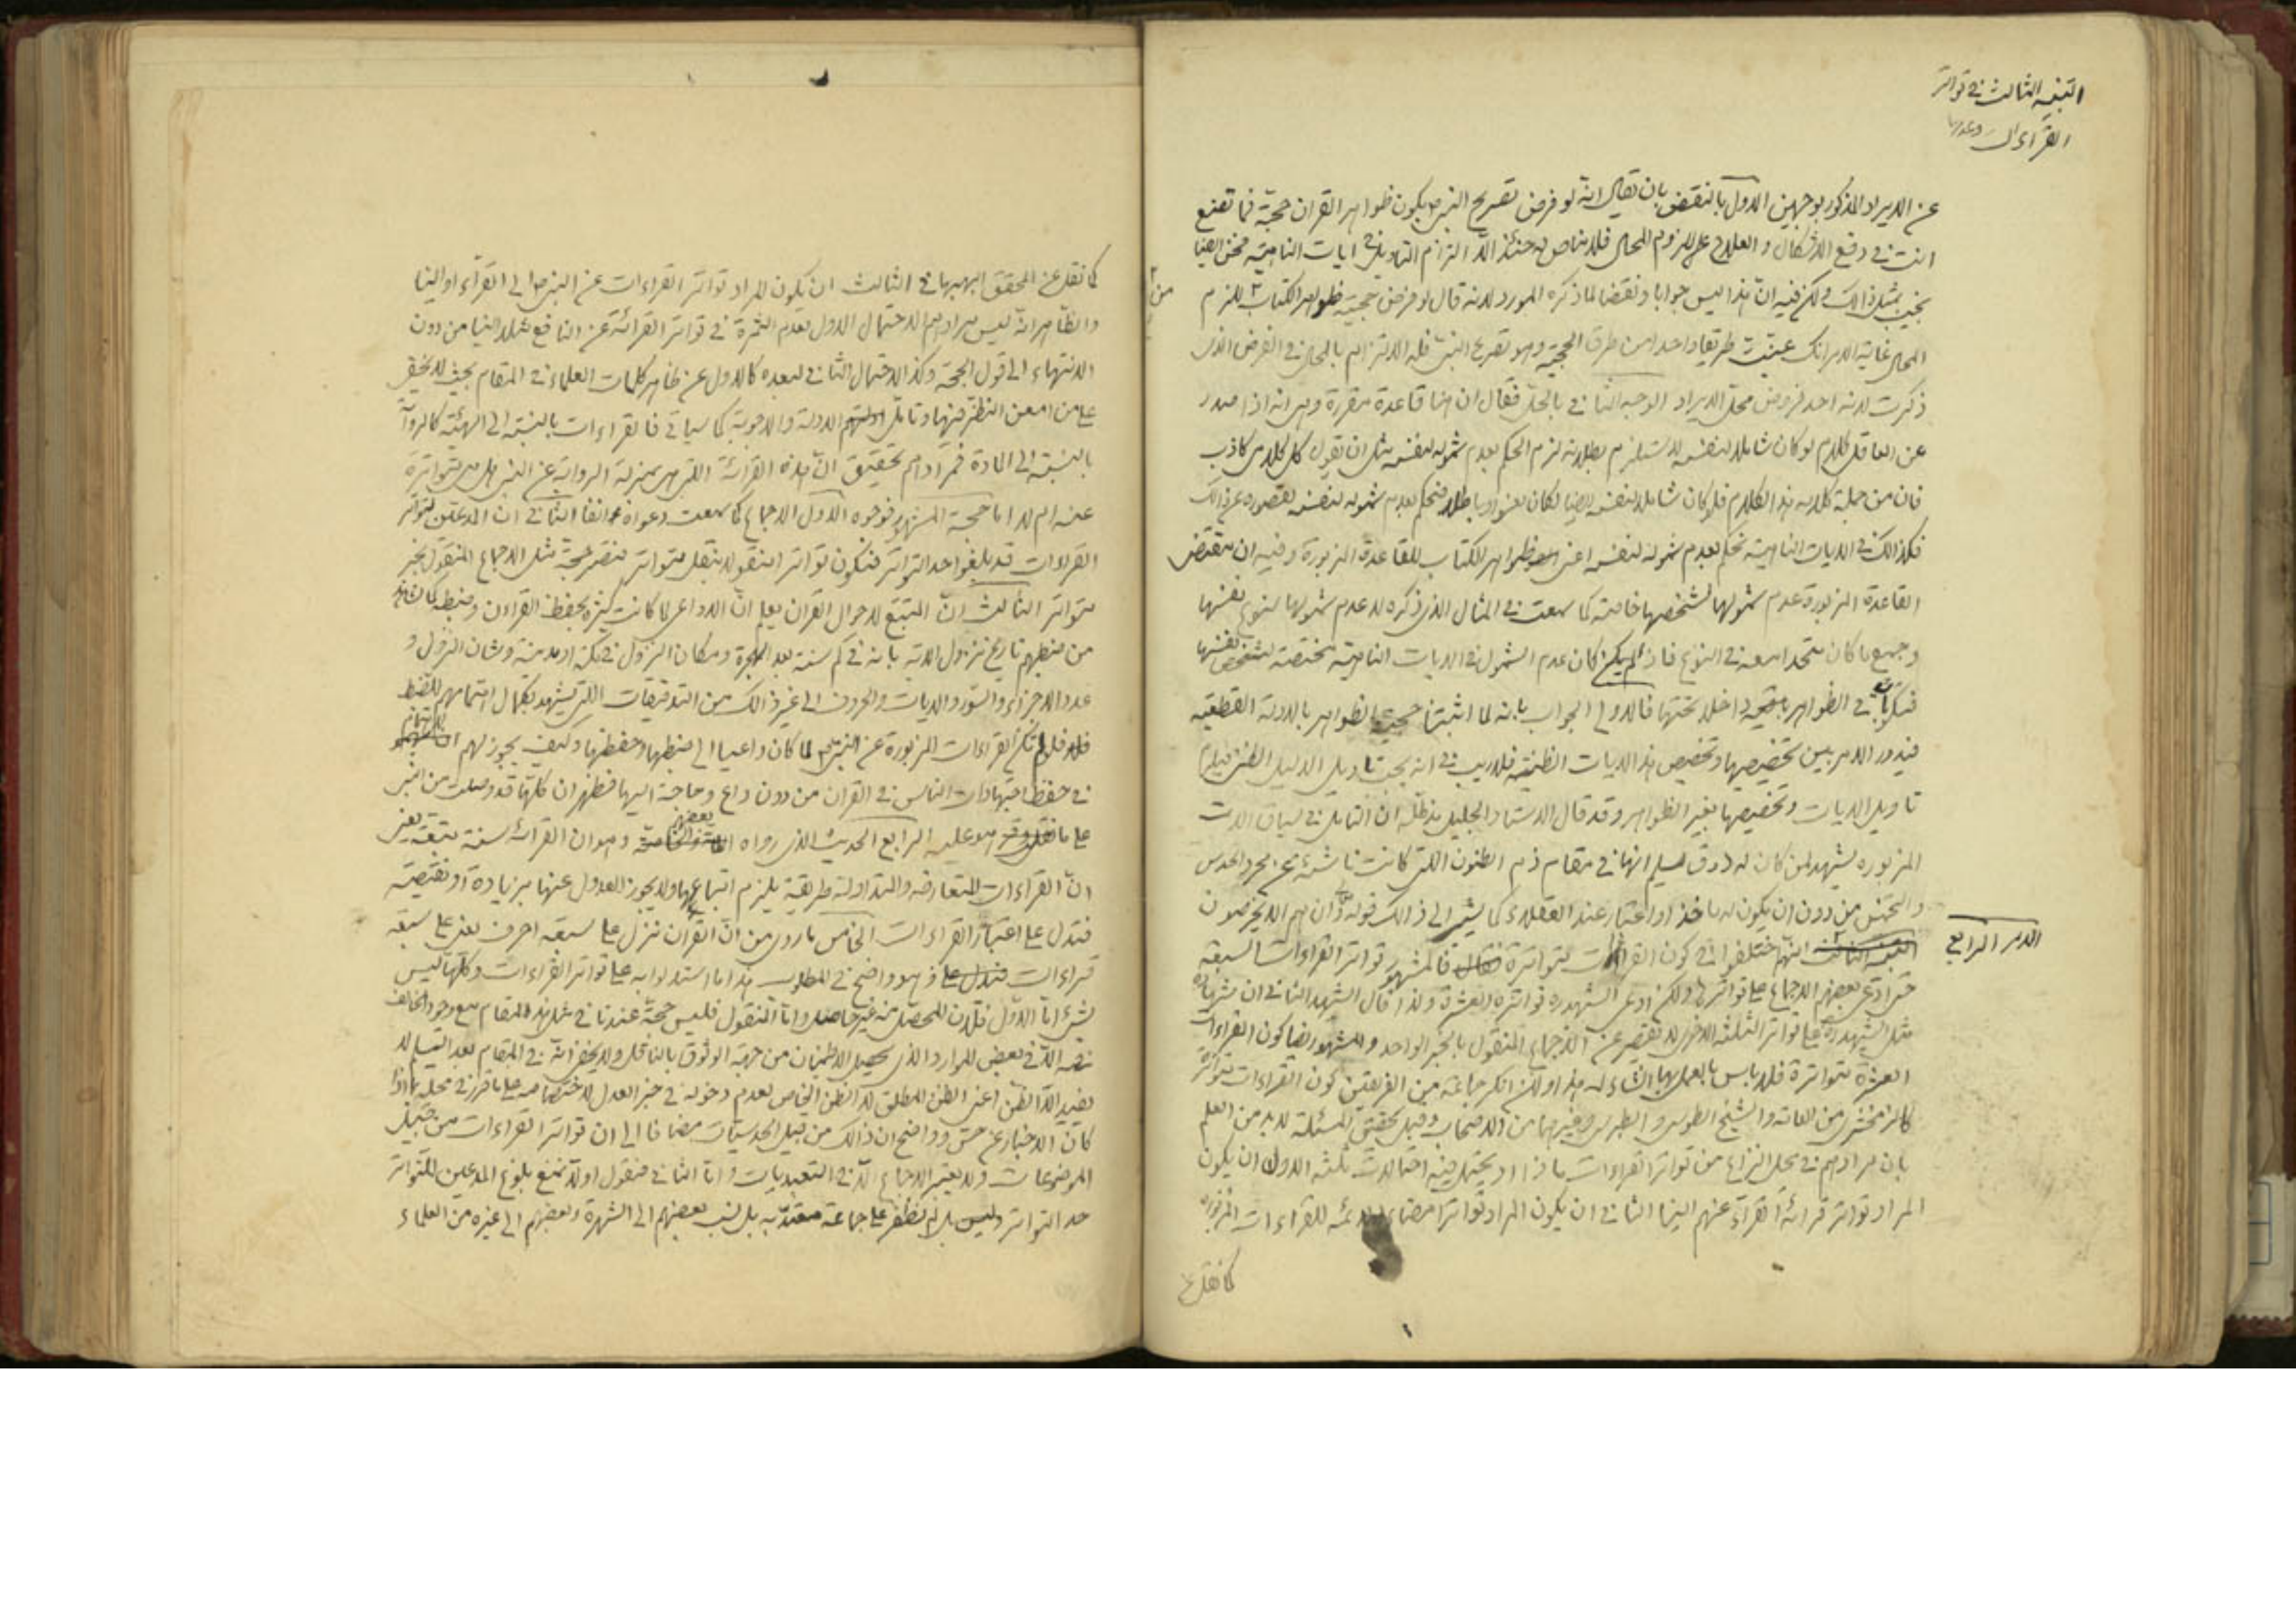 التنبيه الثالث في تواتر
القراءات وعدمها
عن الايراد المذكور بوجهين الاول بالنقض بان يقال انه لو فرض تصريح النبي ص بكون ظواهر القران حجة فما تصنع
انت في دفع الاشكال والعلاج على لزوم المحال فلا مناص له حينئذ الا التزام التاويل في ايات الناهية فنحن ايضا
نجيب بمثل ذالك ولكن فيه ان هذا ليس جوابا ونقضا لما ذكره المورد لانه قال لو فرض حجية ظواهر الكتاب للزم
من
المحال غاية الامر انك عينت طريقا واحدا من طرق الحجية وهو تصريح النبي فله الالتزام بالمحال في الفرض الذي
ذكرت لانه احد فروض محل الايراد الوجه الثاني بالحل فقال ان هنا قاعدة مقررة وهي انه اذا صدر
عن العاقل كلام لو كان شاملا لنفسه لاستلزم بطلانه لزم الحكم بعدم شموله لنفسه مثل ان تقول كل كلامي كاذب
فان من جملة كلامه هذا الكلام فلو كان شاملا لنفسه ايضا لكان لغوا وباطلا فنحكم بعدم شموله لنفسه لقصوره عن ذالك
فكذالك في الايات الناهية نحكم بعدم شموله لنفسه اعني ظواهر الكتاب للقاعدة المزبورة وفيه ان مقتضى
القاعدة المزبورة عدم شمولها لشخصها خاصة كما سمعت في المثال الذي ذكره لا عدم شمولها لنوع نفسها
وجميع ما كان متحدا معه في النوع فاذا لم يكن كان عدم الشمول في الايات الناهية مختصة لشخص نفسها
في الظواهر باقية داخلا تحتها فالاولى الجواب بانه لما اثبتنا حجية الظواهر بالادلة القطعية
فيدور الامر بين تخصيصها وتخصيص هذا الايات الظنية فلا ريب في انه يجب تاويل الدليل الظني فيلزم
تاويل الايات وتخصيصها بغير الظواهر وقد قال الاستاد الجليل مد ظله ان التامل في سياق الايات
المزبورة يشهد لمن كان له ذوق سليم انها في مقام ذم الظنون اللتي كانت ناشئة عن مجرد الحدس
والتخمين من دون ان يكون له ماخذ او اعتبار عند العقلاء كما يشير الى ذالك قوله تع وان هم الا يخرصون
الامر الرابع
التنبيه الثالث انهم اختلفوا في كون القراءات متواترة فالمشهور تواتر القراءات السبعة
حتى ادعى بعضهم الاجماع على تواترها ولكن ادعى الشهيد ره تواتره العشرة ولذا قال الشهيد الثاني ان شهادة
مثل الشهيد ره على تواتر الثلثة الاخرى لا تقصر عن الاجماع المنقول بالخبر الواحد والمشهور ايضا كون القراءات
العشرة متواترة فلا باس بالعمل بها انشاء الله هذا ولكن انكر جماعة من الفريقين كون القراءات متواترة
كالزمخشري من العامة والشيخ الطوسي والطبرسي وغيرهما من الاصحاب وقبل تحقيق المسئلة لا بد من العلم
بان مرادهم في محل النزاع من تواتر القراءات ماذا اذ يحتمل فيه احتمالات ثلثة الاول ان يكون
المراد تواتر قرائة القراء عنهم الينا الثاني ان يكون المراد تواتر امضاء الائمة للقراءات المزبورة
كما نقل عن
كما نقل عن المحقق البهبهاني الثالث ان يكون المراد تواتر القراءات عن النبي ص الى القراء او الينا
والظاهر انه ليس مرادهم الاحتمال الاول لعدم الثمرة في تواتر القرائة عن النافع مثلا الينا من دون
الانتهاء الى قول الحجة وكذا الاحتمال الثاني لبعده كالاول عن ظاهر كلمات العلماء في المقام بحيث لا يخفى
على من امعن النظر فيها وتامل الادلة والاجوبة كما سياتي فالقراءات بالنسبة الى الهيئة كالرواية
بالنسبة الى المادة فمرادهم تحقيق ان هذه القرائة اللتي هي بمنزلة الرواية عن النبي هل هي متواترة
عنه ام لا اما حجة المشهور فوجوه الاول الاجماع كما سمعت دعواه انفا الثاني ان المدعين لتواتر
القراءات قد بلغوا حد التواتر فتكون تواترا منقولا بنقل متواتر فتصر حجة مثل الاجماع المنقول بخبر
متواتر الثالث ان المتتبع لاحوال القران يعلم ان الدواعي لما كانت كثيرة بحفظ القران وضبطه كما شاهد
من ضبطهم تاريخ نزول الاية بانه في كم سنة بعد الهجرة ومكان النزول في مكة او مدينة وشان النزول و
عدد الاجزاء والسور والايات والحروف الى غير ذالك من التدقيقات اللتي يشهد بكمال اهتمامهم للضبط
فلو لم تكن القراءات المزبورة عن النبي ص لما كان داعيا الى ضبطها وحفظها وكيف يجوز لهم الاهتمام
في حفظ اجتهادات الناس في القران من دون داع وحاجة اليها فظهر ان كلها قد وصلت من النبي
على ما هو عليه الرابع الحديث الذي رواه بعضهم وهو ان القرائة سنة متبعة يعني
ان القراءات المتعارفة والمتداولة طريقة يلزم اتباعها ولا يجوز العدول عنها بزيادة او نقيصة
فتدل على اعتبار القراءات الخامس ما روي من ان القران نزل على سبعة احرف يعني على سبعة
قراءات وهو واضح في المطلوب هذا ما استدلوا به على تواتر القراءات وكلها ليس
بشئ اما الاول فلان المحصل منه غير حاصل واما المنقول فليس حجة عندنا في مثل هذا المقام مع وجود المخالف
الا في بعض الموارد الذي يحصل الاطمينان من جهة الوثوق بالناقل ولا يخفى انه في المقام بعد التسليم لا
يفيد الا الظن اعني الظن المطلق لا الظن الخاص لعدم دخوله في خبر العدل لاختصاصه على ما قرر في محله بما اذا
كان الاخبار عن حس وواضح ان ذالك من قبيل الحدسيات مضافا الى ان تواتر القراءات من قبيل
الموضوعات ولا يعتبر الاجماع الا في التعبديات واما الثاني فنقول اولا نمنع بلوغ المدعين للتواتر
حد التواتر بل لم نظفر على جماعة معتدة به بل نسب بعضهم الى الشهرة وبعضهم الى غيره من العلماء